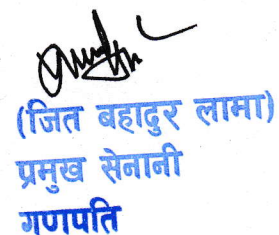 (जित बहादुर लामा)
प्रमुख सेनानी
गणपति